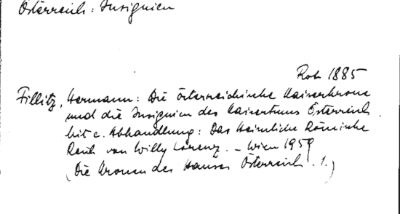 Österreich: Insignien
Rob 1885
Fillitz, Hermann: Die österreichische Kaiserkrone
und die Insignien des Kaisertums Österreich.
Mit e. Abhandlung: Das Heimliche Römische
Reich von Willy Lorenz. - Wien 1959
(Die Kronen des Hauses Österreich. 1.)